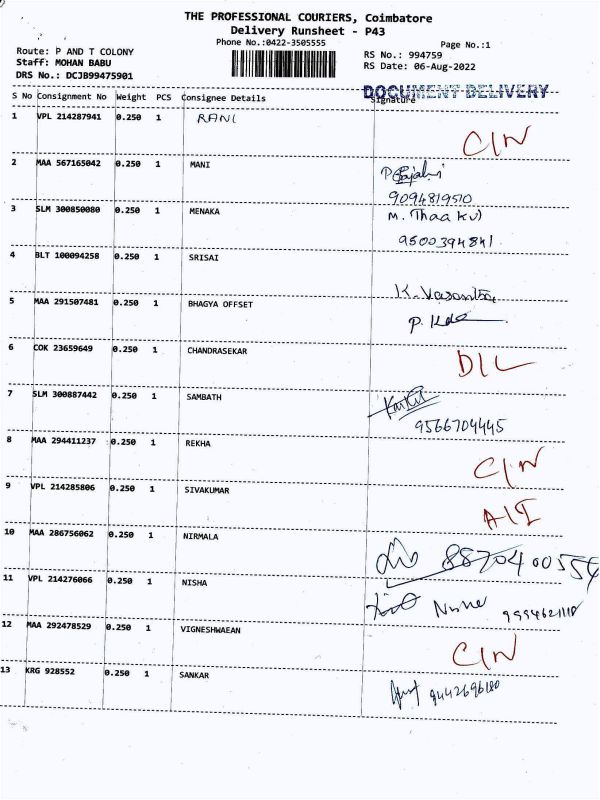 THE PROFESSIONAL COURIERS, Coimbatore
Delivery Runsheet - P43
Phone No.:0422-3505555
Page No.:1
Route: P AND T COLONY
RS No.: 994759
Staff: MOHAN BABU
RS Date: 06-Aug-2022
DRS No.: DCJB99475901
DOCUMENT DELIVERY
S No Consignment No Weight PCS Consignee Details Signature
1 VPL 214287941 0.250 1 RANI C/N
2 MAA 567165042 0.250 1 MANI
9094819510
3 SLM 300850080 0.250 1 MENAKA M. Thaakul
9500394841
4 BLT 100094258 0.250 1 SRISAI K. Vasantha
5 MAA 291507481 0.250 1 BHAGYA OFFSET
6 COK 23659649 0.250 1 CHANDRASEKAR D/L
7 SLM 300887442 0.250 1 SAMBATH
9566704445
8 MAA 294411237 0.250 1 REKHA C/N
9 VPL 214285806 0.250 1 SIVAKUMAR A/I
10 MAA 286756062 0.250 1 NIRMALA 8870400554
11 VPL 214276066 0.250 1 NISHA
12 MAA 292478529 0.250 1 VIGNESHWAEAN C/N
13 KRG 928552 0.250 1 SANKAR 9442696180